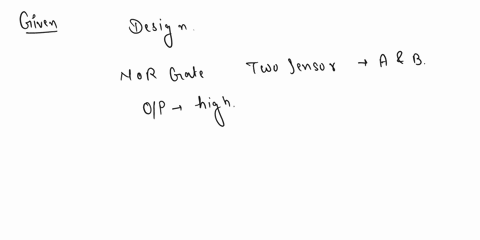 Given Design.
NOR Gate Two Sensor → A & B.
O/P → high.